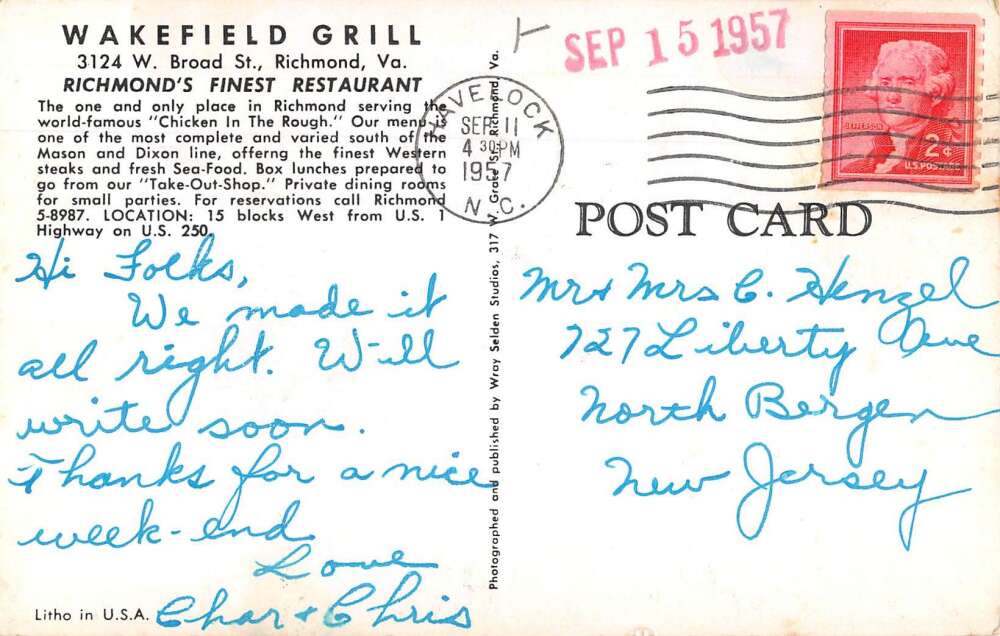 WAKEFIELD GRILL
3124 W. Broad St., Richmond, Va.
RICHMOND'S FINEST RESTAURANT
The one and only place in Richmond serving the
world-famous "Chicken In The Rough." Our menu is
one of the most complete and varied south of the
Mason and Dixon line, offerng the finest Western
steaks and fresh Sea-Food. Box lunches prepared to
go from our "Take-Out-Shop." Private dining rooms
for small parties. For reservations call Richmond
5-8987. LOCATION: 15 blocks West from U.S. 1
Highway on U.S. 250.
Hi Folks,
We made it
all right. W-ill
write soon.
Thanks for a nice
week-end
Love
Char + Chris
Litho in U.S.A.
Photographed and published by Wray Selden Studios, 317 W. Grace St., Richmond, Va.
HAVELOCK
SEP 11
4 30 PM
1957
N. C.
SEP 15 1957
JEFFERSON
2¢
U.S. POSTAGE
POST CARD
Mr + Mrs C. Henzel
727 Liberty Ave
North Bergen
New Jersey